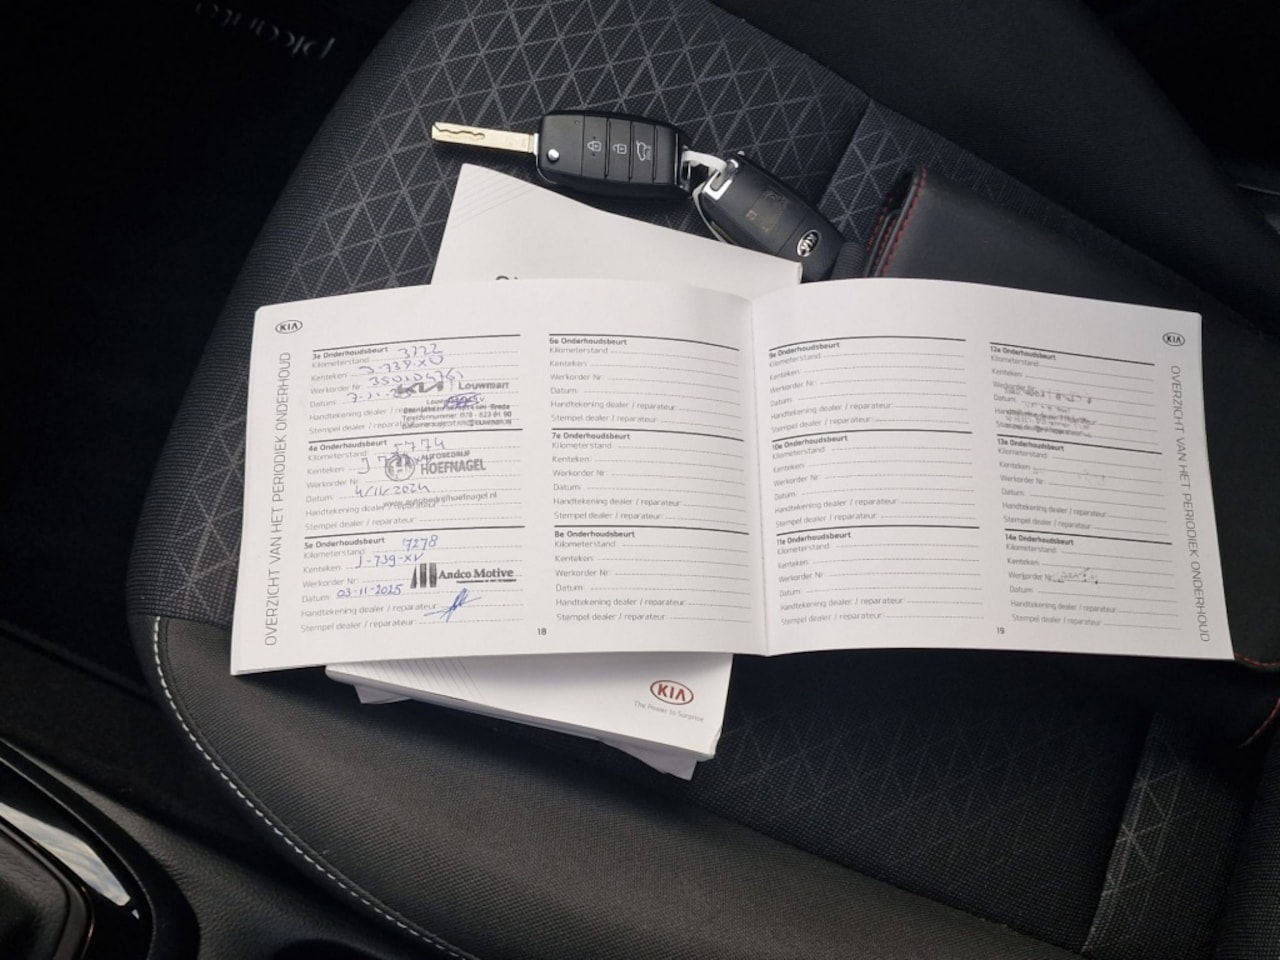 picanto
KIA
KIA
OVERZICHT VAN HET PERIODIEK ONDERHOUD
3e Onderhoudsbeurt
Kilometerstand 3722
Kenteken: J-739-XV
Werkorder Nr
Datum:
KIA Louwman
Handtekening dealer / reparateur
Stempel dealer / reparateur:
4e Onderhoudsbeurt
Kilometerstand: 5774
Kenteken:
AUTOBEDRIJF
HOEFNAGEL
Werkorder Nr
Datum: 4/11/2024
www.autobedrijfhoefnagel.nl
Handtekening dealer / reparateur:
Stempel dealer / reparateur:
5e Onderhoudsbeurt
Kilometerstand: 7278
Kenteken: J-739-XV
Werkorder Nr:
Andco Motive
Datum: 03-11-2025
Handtekening dealer / reparateur:
Stempel dealer / reparateur:
6e Onderhoudsbeurt
Kilometerstand:
Kenteken:
Werkorder Nr:
Datum:
Handtekening dealer / reparateur:
Stempel dealer / reparateur:
7e Onderhoudsbeurt
Kilometerstand:
Kenteken:
Werkorder Nr:
Datum:
Handtekening dealer / reparateur:
Stempel dealer / reparateur:
8e Onderhoudsbeurt
Kilometerstand:
Kenteken:
Werkorder Nr:
Datum:
Handtekening dealer / reparateur:
Stempel dealer / reparateur:
18
9e Onderhoudsbeurt
Kilometerstand:
Kenteken:
Werkorder Nr:
Datum:
Handtekening dealer / reparateur:
Stempel dealer / reparateur:
10e Onderhoudsbeurt
Kilometerstand:
Kenteken:
Werkorder Nr:
Datum:
Handtekening dealer / reparateur:
Stempel dealer / reparateur:
11e Onderhoudsbeurt
Kilometerstand:
Kenteken:
Werkorder Nr:
Datum:
Handtekening dealer / reparateur:
Stempel dealer / reparateur:
12e Onderhoudsbeurt
Kilometerstand:
Kenteken:
Werkorder Nr:
Datum:
Handtekening dealer / reparateur
Stempel dealer / reparateur:
13e Onderhoudsbeurt
Kilometerstand:
Kenteken:
Werkorder Nr:
Datum:
Handtekening dealer / reparateur:
Stempel dealer / reparateur:
14e Onderhoudsbeurt
Kilometerstand:
Kenteken:
Werkorder Nr:
Datum:
Handtekening dealer / reparateur:
Stempel dealer / reparateur:
19
KIA
OVERZICHT VAN HET PERIODIEK ONDERHOUD
KIA
The Power to Surprise